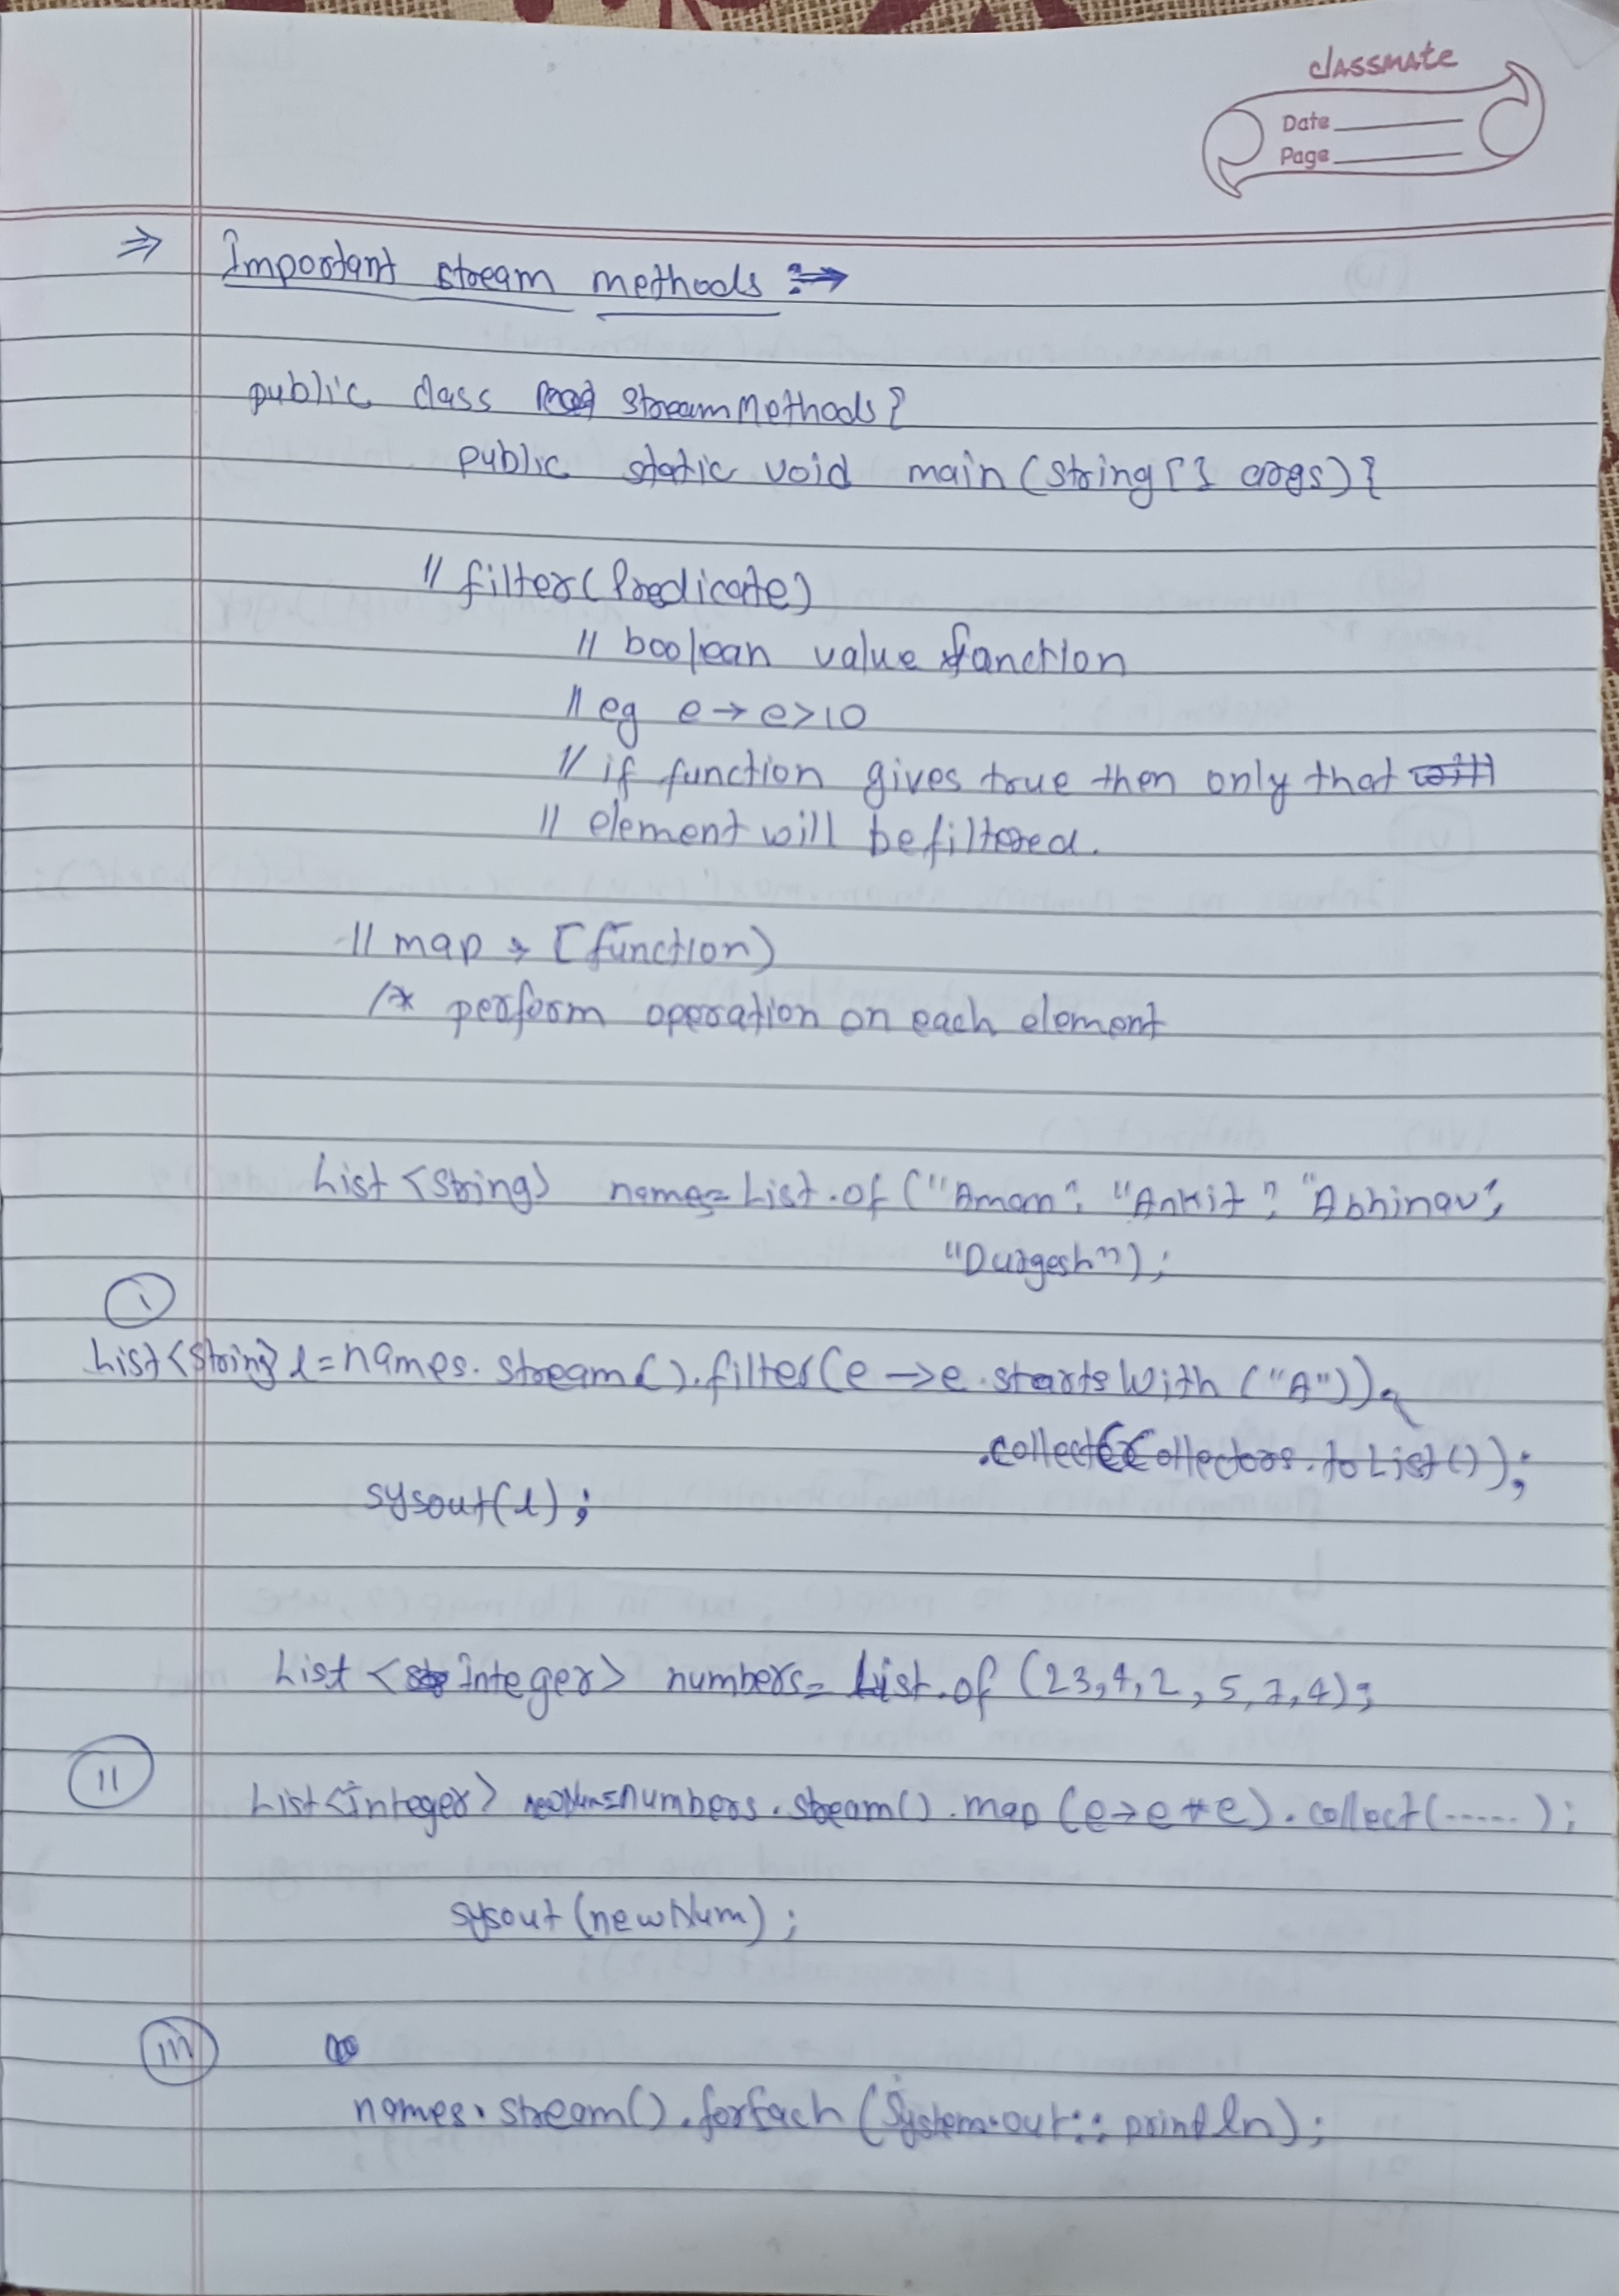 classmate
Date
Page
⇒ Important stream methods :→
public class StreamMethods {
public static void main (string [] args) {
// filter (Predicate)
// boolean value function
// eg e → e>10
// if function gives true then only that will
// element will be filtered.
// map → [function)
/* perform operation on each element
List <String> names = List.of ("Aman", "Ankit", "Abhinav",
"Durgesh");
(i)
List<String> l = names.stream().filter(e → e.startsWith ("A"))
.collect(Collectors.toList());
sysout(l);
List <Integer> numbers = List.of (23,4,2,5,7,4);
(ii)
List<integer> newNum=numbers.stream().map (e→e*e).collect(......);
sysout (newNum);
(iii)
names.stream().forEach (System.out::println);